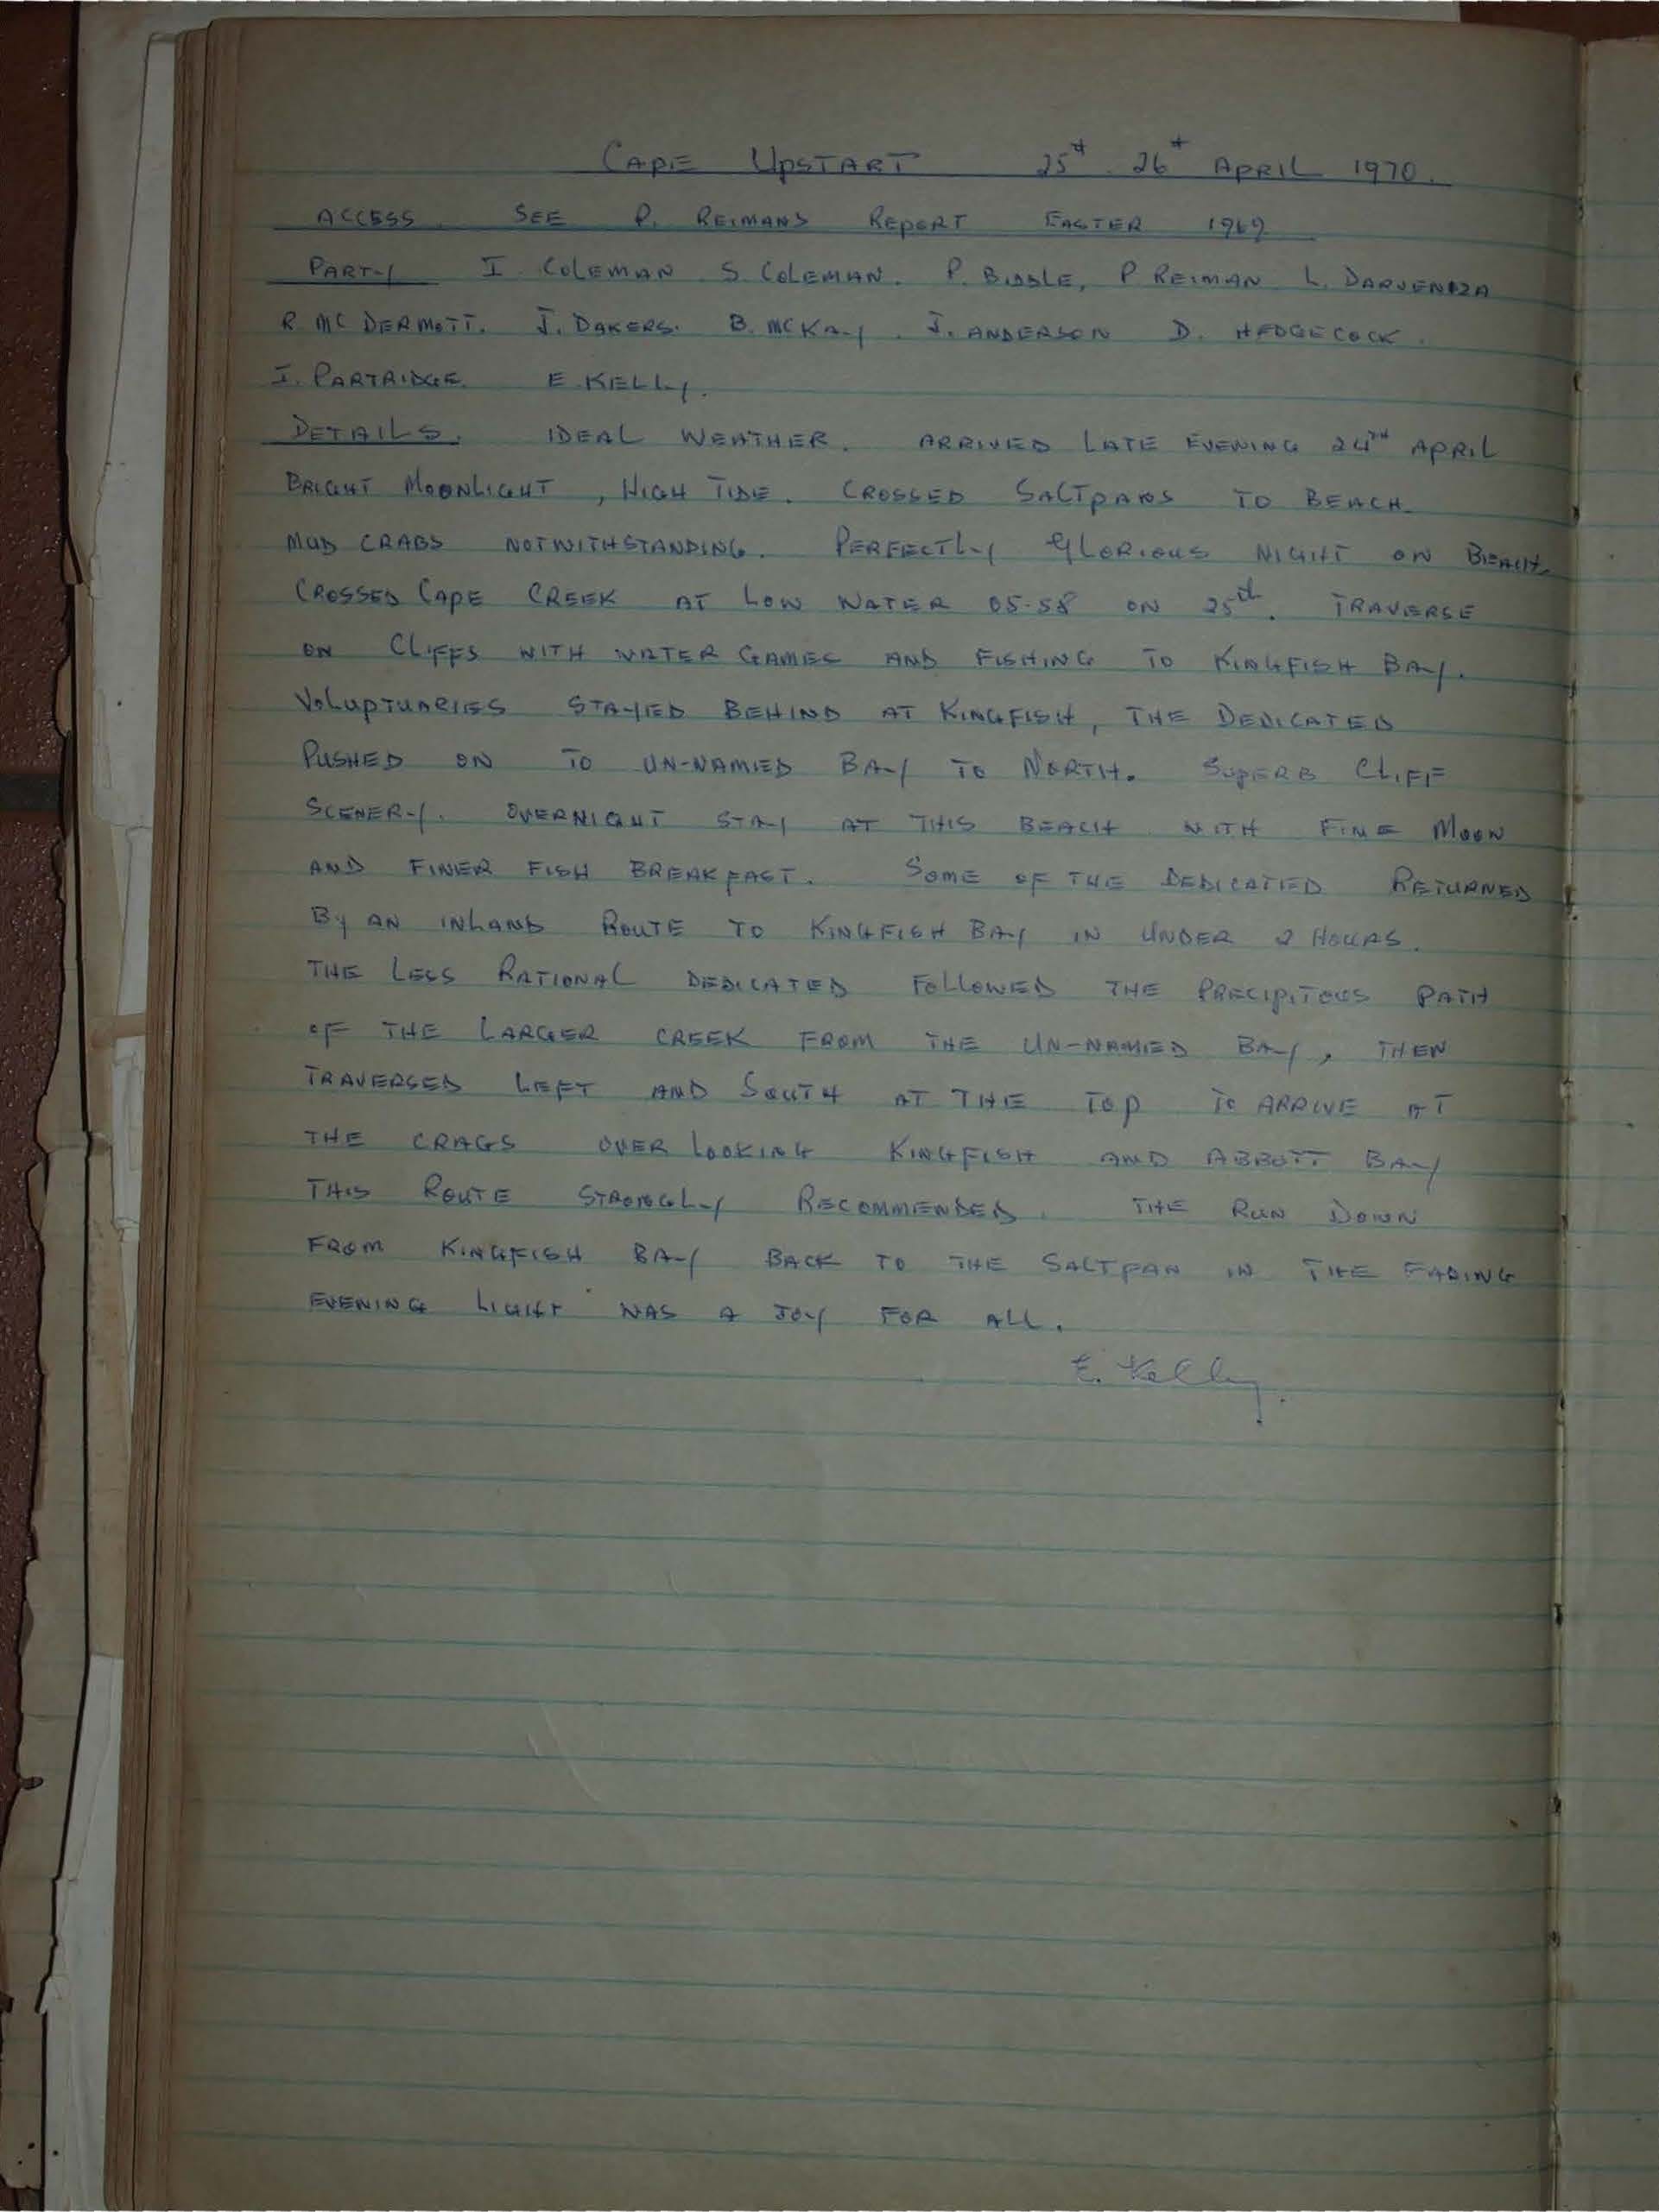 CAPE UPSTART 25th 26th APRIL 1970.
ACCESS. SEE P. REIMANS REPORT EASTER 1969
PARTY I. COLEMAN. S. COLEMAN. P. BIDDLE, P REIMAN L. DARVENIZA
R MC DERMOTT. J. DAKERS. B. MCKAY. J. ANDERSON D. HEDGECOCK.
I. PARTRIDGE. E. KELLY.
DETAILS. IDEAL WEATHER. ARRIVED LATE EVENING 24TH APRIL
BRIGHT MOONLIGHT, HIGH TIDE. CROSSED SALTPANS TO BEACH
MUD CRABS NOTWITHSTANDING. PERFECTLY GLORIOUS NIGHT ON BEACH
CROSSED CAPE CREEK AT LOW WATER 05.58 ON 25th. TRAVERSE
ON CLIFFS WITH WATER GAMES AND FISHING TO KINGFISH BAY.
VOLUPTUARIES STAYED BEHIND AT KINGFISH, THE DEDICATED
PUSHED ON TO UN-NAMED BAY TO NORTH. SUPERB CLIFF
SCENERY. OVERNIGHT STAY AT THIS BEACH WITH FINE MOON
AND FINER FISH BREAKFAST. SOME OF THE DEDICATED RETURNED
BY AN INLAND ROUTE TO KINGFISH BAY IN UNDER 2 HOURS.
THE LESS RATIONAL DEDICATED FOLLOWED THE PRECIPITOUS PATH
OF THE LARGER CREEK FROM THE UN-NAMED BAY, THEN
TRAVERSED LEFT AND SOUTH AT THE TOP TO ARRIVE AT
THE CRAGS OVER LOOKING KINGFISH AND ABBOTT BAY
THIS ROUTE STRONGLY RECOMMENDED. THE RUN DOWN
FROM KINGFISH BAY BACK TO THE SALTPAN IN THE FADING
EVENING LIGHT WAS A JOY FOR ALL.
E. Kelly.